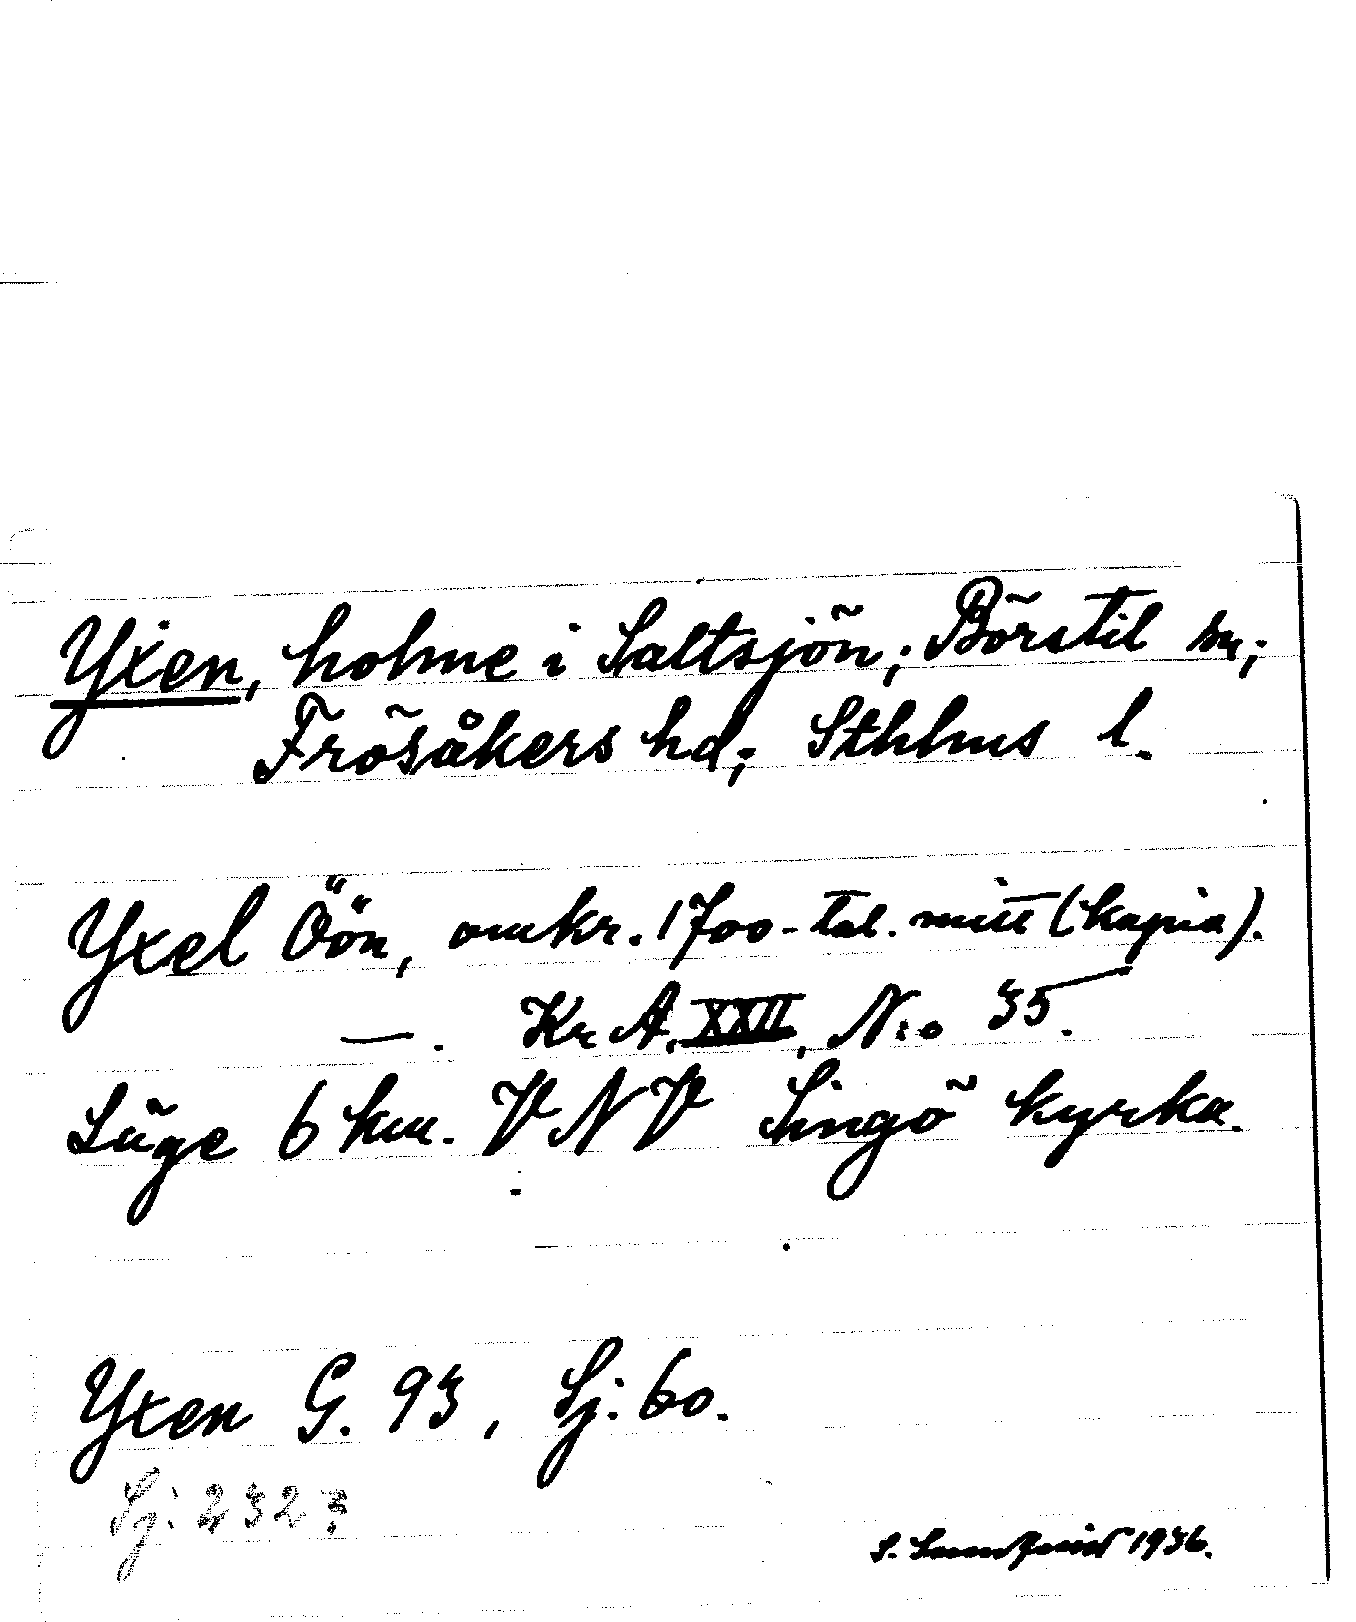 Yxen, holme i Saltsjön; Börstil sn;
Frösåkers hd; Sthlms l.
Yxel Öön, omkr. 1700-tal. mitt (kopia).
—. Kr A. XXII, N:o 35.
Läge 6 km. VNV Singö kyrka.
Yxen G. 93, Sj: 60.
Sj: 232 3
S. Lundquist 1936.